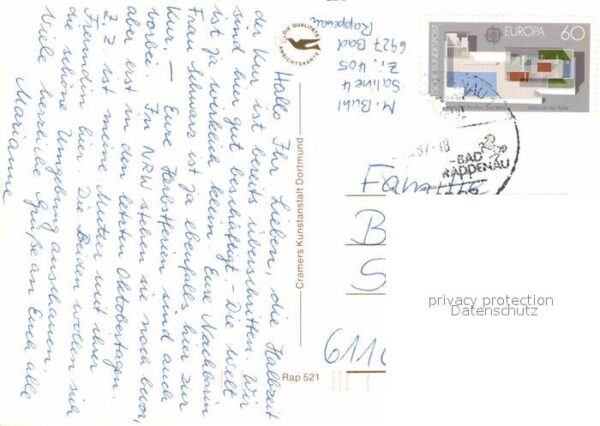 Hallo Ihr Lieben, die Halbzeit
der Kur ist bereits überschritten. Wir
sind hier gut beschäftigt. - Die Welt
ist ja wirklich klein. Eure Nachbarin
Frau Schwarz ist ja ebenfalls hier zur
Kur. - Eure Herbstferien sind auch
vorbei. In NRW stehen sie noch bevor,
aber erst in den letzten Oktobertagen.
Z. Z. ist meine Mutter mit ihrer
Freundin hier. Die Beiden wollen sich
die schöne Umgebung anschauen.
Viele herzliche Grüße an Euch alle
Marianne
DIE QUALITÄTS
ANSICHTSKARTE
Cramers Kunstanstalt Dortmund
Rap 521
M. Buhl
Saline 4
Zi. 405
6927 Bad
Rappenau
DEUTSCHE BUNDESPOST
EUROPA
60
87-18
-BAD
RAPPENAU
Familie
B
S
6110
privacy protection
Datenschutz